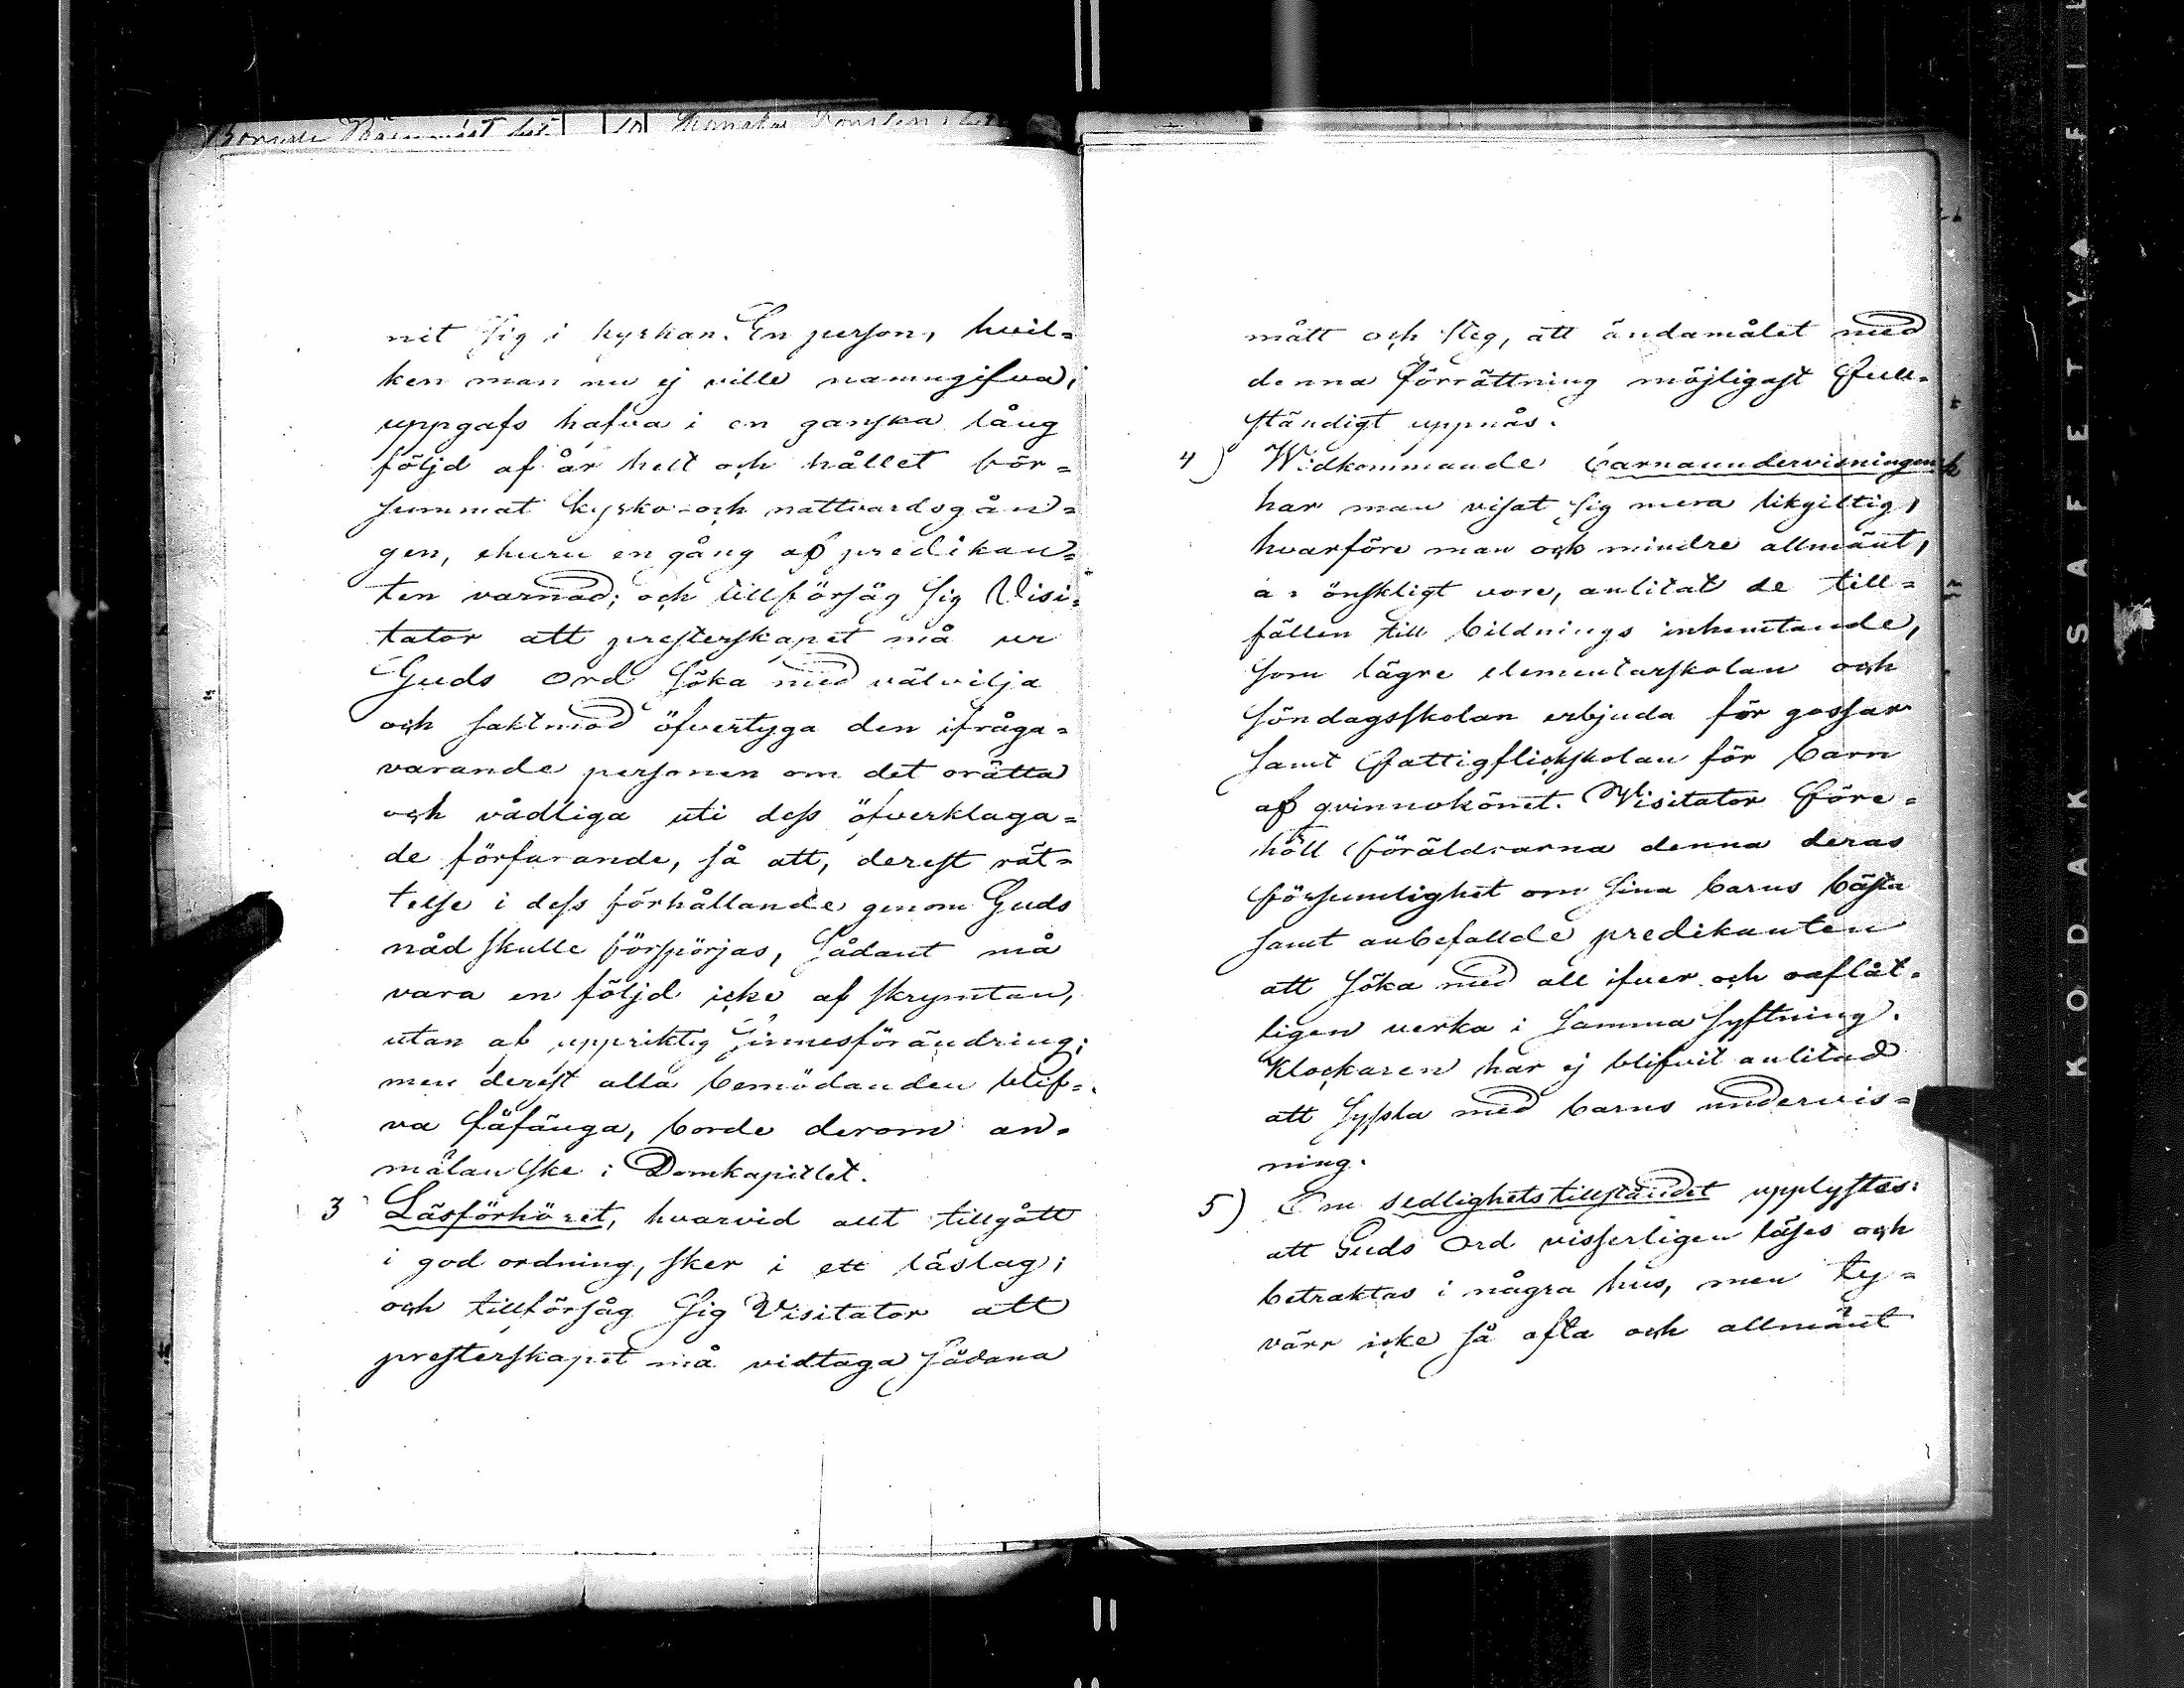 nit sig i kyrkan. En person, hvil=
ken man nu ej ville namngifva,
uppgafs hafva i en ganska lång
följd af år helt och hållet för=
summat kyrko- och nattvardsgån=
gen, ehuru en gång af predikan=
ten varnad; och tillförsåg sig Visi=
tator att presterskapet må ur
Guds ord söka med välvilja
och saktmod öfvertyga den ifråga=
varande personen om det orätta
och vådliga uti dess öfverklaga=
de förfarande, så att, derest rät=
telse i dess förhållande genom Guds
nåd skulle förspörjas, sådant må
vara en följd icke af skrymtan,
utan af uppriktig sinnesförändring;
men derest alla bemödanden blif=
va fåfänga, borde derom an=
mälan ske i Domkapitlet.
3 Läsförhöret, hvarvid allt tillgått
i god ordning, sker i ett läslag;
och tillförsåg sig Visitator att
presterskapet må vidtaga sådana
mått och steg, att ändamålet med
denna förrättning möjligast full=
ständigt uppnås.
4) Widkommande barnaundervisningen
har man visat sig mera likgiltig,
hvarföre man och mindre allmänt,
än önskligt vore, anlitat de till=
fällen till bildnings inhemtande,
som lägre elementarskolan och
söndagsskolan erbjuda för gossar
samt fattigflickskolan för barn
af qvinnokönet. Visitator före=
höll föräldrarna denna deras
försumlighet om sina barns bästa
samt anbefallde predikanten
att söka med all ifver och oaflåt=
ligen verka i samma syftning.
Klockaren har ej blifvit anlitad
att syssla med barns undervis=
ning.
5) Om sedlighetstillståndet upplystes:
att Guds Ord visserligen läses och
betraktas i några hus, men ty=
värr icke så ofta och allmänt
KODAK SAFETY FIL